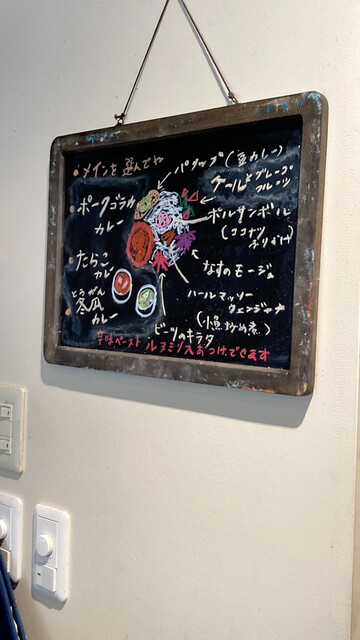 ・メインを選んでね
・ポークゴラカ
カレー
・たらこ
カレー
とうがん
・冬瓜
カレー
パリップ(豆カレー)
ケールとグレープ
フルーツ
ポルサンボル
(ココナツ
ふりかけ)
なすのモージュ
ハールマッソー
(小魚炒め煮)
ビーツのキラタ
辛味ペースト ルヌミリス おつけできます